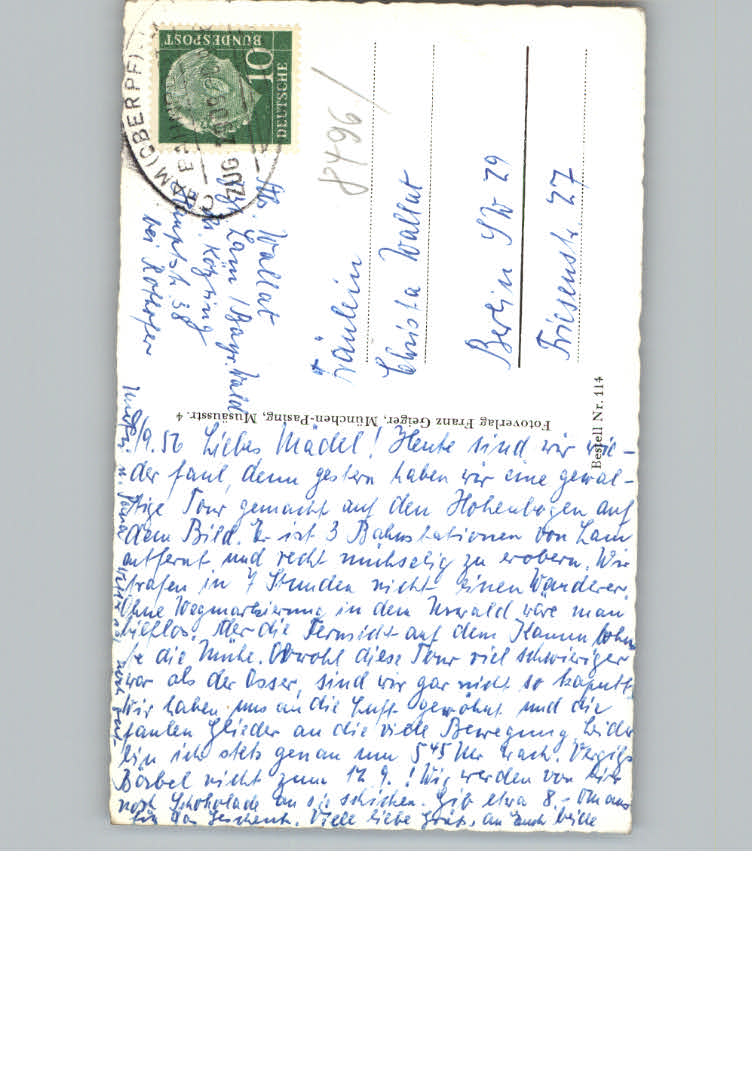 DEUTSCHE
BUNDESPOST
10
CHAM (OBERPF)
ZUG
8496/
Abs. Wallat
Lam / Bayr. Wald
Kr. Kötzting
Hauptstr. 38
bei
Fräulein
Christa Wallat
Berlin SW 29
Friesenstr. 27
Fotoverlag Franz Geiger, München-Pasing, Musausstr. 4
Bestell Nr. 114
/9.56 Liebes Mädel! Heute sind wir wie-
der faul, denn gestern haben wir eine gewal-
tige Tour gemacht auf den Hohenbogen auf
dem Bild. Er ist 3 Bahnstationen von Lam
entfernt und recht mühselig zu erobern. Wir
trafen in 7 Stunden nicht einen Wanderer.
Ohne Wegmarkierung in dem Urwald wäre man
hilflos. Aber die Fernsicht auf dem Kamm lohn-
te die Mühe. Obwohl diese Tour viel schwieriger
war als der Osser, sind wir gar nicht so kaputt.
Wir haben uns an die Luft gewöhnt und die
faulen Glieder an die viele Bewegung. Leider
bin ich stets genau um 5 45 Uhr wach. Vergiß
Bärbel nicht zum 12. 9.! Wir werden von hier
noch Schokolade an sie schicken. Gib etwa 8,- DM aus
für das Geschenk. Viele liebe Grüße an Euch beide